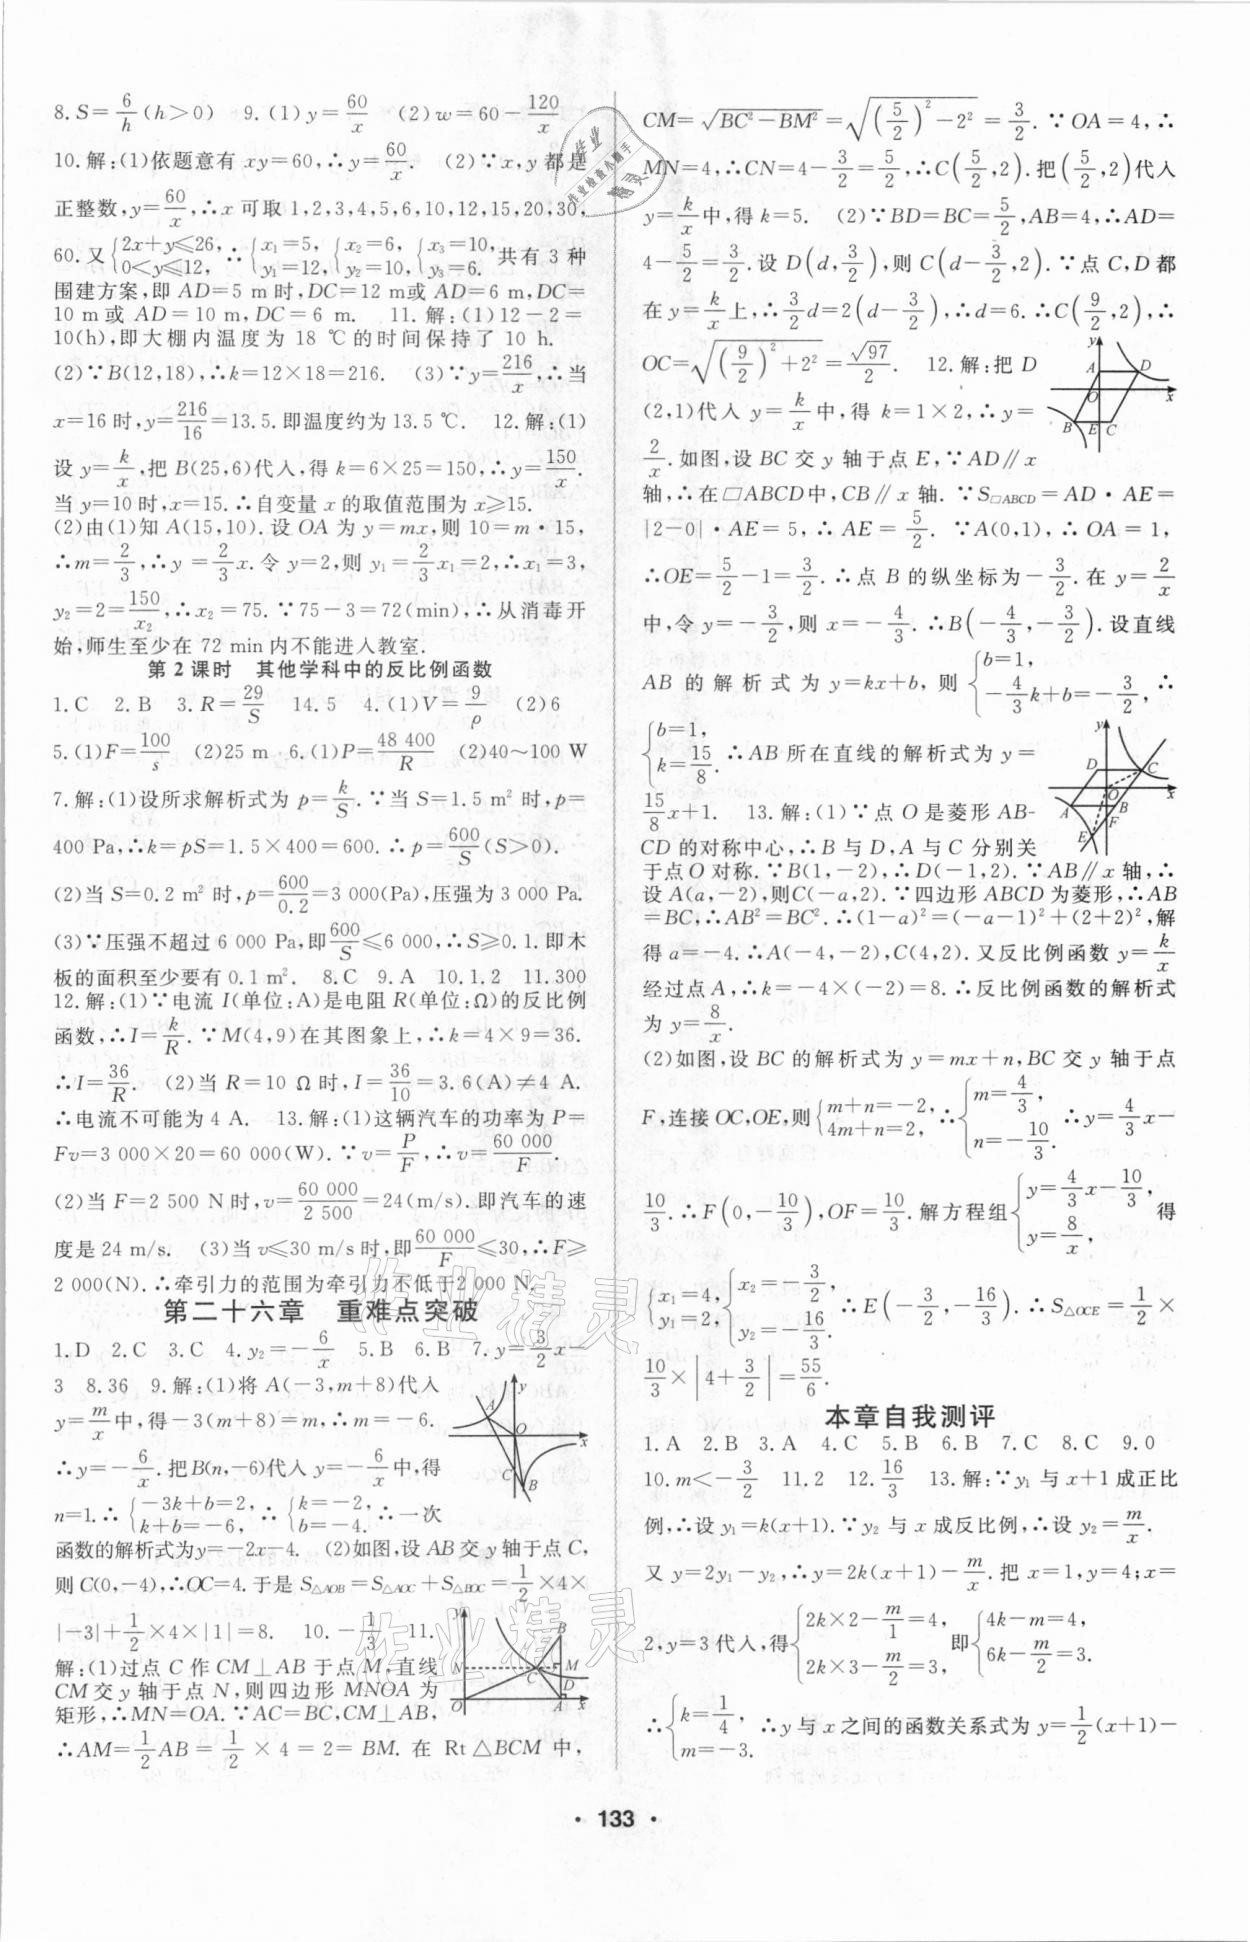 8.S=6/h(h>0)　9.(1)y=60/x　(2)w=60-120/x
10.解:(1)依题意有 xy=60,∴y=60/x.　(2)∵x,y 都是
正整数,y=60/x,∴x 可取 1,2,3,4,5,6,10,12,15,20,30,
60.又{2x+y≤26, 0<y≤12, ∴{x₁=5, y₁=12, {x₂=6, y₂=10, {x₃=10, y₃=6. 共有 3 种
围建方案,即 AD=5 m 时,DC=12 m或 AD=6 m,DC=
10 m或 AD=10 m,DC=6 m.　11.解:(1)12-2=
10(h),即大棚内温度为 18 ℃的时间保持了 10 h.
(2)∵B(12,18),∴k=12×18=216.　(3)∵y=216/x,∴当
x=16 时,y=216/16=13.5.即温度约为 13.5 ℃.　12.解:(1)
设 y=k/x,把 B(25,6)代入,得 k=6×25=150,∴y=150/x.
当 y=10 时,x=15.∴自变量 x 的取值范围为 x≥15.
(2)由(1)知 A(15,10).设 OA 为 y=mx,则 10=m·15,
∴m=2/3,∴y=2/3x.令 y=2,则 y₁=2/3x₁=2,∴x₁=3,
y₂=2=150/x₂,∴x₂=75.∵75-3=72(min),∴从消毒开
始,师生至少在 72 min 内不能进入教室.
第 2 课时　其他学科中的反比例函数
1.C　2.B　3.R=29/S　14.5　4.(1)V=9/ρ　(2)6
5.(1)F=100/s　(2)25 m　6.(1)P=48 400/R　(2)40~100 W
7.解:(1)设所求解析式为 p=k/S.∵当 S=1.5 m²时,p=
400 Pa,∴k=pS=1.5×400=600.∴p=600/S(S>0).
(2)当 S=0.2 m²时,p=600/0.2=3 000(Pa),压强为 3 000 Pa.
(3)∵压强不超过 6 000 Pa,即600/S≤6 000,∴S≥0.1.即木
板的面积至少要有 0.1 m².　8.C　9.A　10.1.2　11.300
12.解:(1)∵电流 I(单位:A)是电阻 R(单位:Ω)的反比例
函数,∴I=k/R.∵M(4,9)在其图象上,∴k=4×9=36.
∴I=36/R.　(2)当 R=10 Ω时,I=36/10=3.6(A)≠4 A.
∴电流不可能为 4 A.　13.解:(1)这辆汽车的功率为 P=
Fv=3 000×20=60 000(W).∵v=P/F,∴v=60 000/F.
(2)当 F=2 500 N时,v=60 000/2 500=24(m/s).即汽车的速
度是 24 m/s.　(3)当 v≤30 m/s 时,即60 000/F≤30,∴F≥
2 000(N).∴牵引力的范围为牵引力不低于2 000 N.
第二十六章　重难点突破
1.D　2.C　3.C　4.y₂=-6/x　5.B　6.B　7.y=3/2x-
3　8.36　9.解:(1)将 A(-3,m+8)代入
y=m/x中,得-3(m+8)=m,∴m=-6.
∴y=-6/x.把B(n,-6)代入y=-6/x中,得
n=1.∴{-3k+b=2, k+b=-6, ∴{k=-2, b=-4. ∴一次
函数的解析式为y=-2x-4.　(2)如图,设 AB 交 y 轴于点 C,
则 C(0,-4),∴OC=4.于是 S△AOB=S△AOC+S△BOC=1/2×4×
|-3|+1/2×4×|1|=8.　10.-1/3　11.
解:(1)过点 C 作 CM⊥AB 于点 M,直线
CM交 y 轴于点 N,则四边形 MNOA 为
矩形,∴MN=OA.∵AC=BC,CM⊥AB,
∴AM=1/2AB=1/2×4=2=BM.在 Rt△BCM 中,
y
A
O
x
C
B
y
B
N
M
C
O
A
x
CM=√(BC²-BM²)=√((5/2)²-2²)=3/2.∵OA=4,∴
MN=4,∴CN=4-3/2=5/2,∴C(5/2,2).把(5/2,2)代入
y=k/x中,得 k=5.　(2)∵BD=BC=5/2,AB=4,∴AD=
4-5/2=3/2.设 D(d,3/2),则 C(d-3/2,2).∵点 C,D 都
在 y=k/x上,∴3/2d=2(d-3/2),∴d=6.∴C(9/2,2),∴
OC=√((9/2)²+2²)=√97/2.　12.解:把 D
(2,1)代入 y=k/x中,得 k=1×2,∴y=
2/x.如图,设 BC 交 y 轴于点 E,∵AD∥x
轴,∴在□ABCD中,CB∥x 轴.∵S□ABCD=AD·AE=
|2-0|·AE=5,∴AE=5/2.∵A(0,1),∴OA=1,
∴OE=5/2-1=3/2.∴点 B 的纵坐标为-3/2.在 y=2/x
中,令 y=-3/2,则 x=-4/3.∴B(-4/3,-3/2).设直线
AB 的解析式为 y=kx+b,则{b=1, -4/3k+b=-3/2, ∴
{b=1, k=15/8. ∴AB 所在直线的解析式为 y=
15/8x+1.　13.解:(1)∵点 O 是菱形 AB-
CD 的对称中心,∴B 与 D,A 与 C 分别关
于点 O 对称.∵B(1,-2),∴D(-1,2).∵AB∥x 轴,∴
设 A(a,-2),则C(-a,2).∵四边形 ABCD 为菱形,∴AB
=BC,∴AB²=BC².∴(1-a)²=(-a-1)²+(2+2)²,解
得 a=-4.∴A(-4,-2),C(4,2).又反比例函数 y=k/x
经过点 A,∴k=-4×(-2)=8.∴反比例函数的解析式
为 y=8/x.
(2)如图,设 BC 的解析式为 y=mx+n,BC 交 y 轴于点
F,连接 OC,OE,则{m+n=-2, 4m+n=2, ∴{m=4/3, n=-10/3. ∴y=4/3x-
10/3.∴F(0,-10/3),OF=10/3.解方程组{y=4/3x-10/3, y=8/x, 得
{x₁=4, y₁=2, {x₂=-3/2, y₂=-16/3. ∴E(-3/2,-16/3).∴S△OCE=1/2×
10/3×|4+3/2|=55/6.
y
A
D
O
x
B
E
C
y
D
C
O
x
A
B
F
E
本章自我测评
1.A　2.B　3.A　4.C　5.B　6.B　7.C　8.C　9.0
10.m<-3/2　11.2　12.16/3　13.解:∵y₁ 与 x+1 成正比
例,∴设 y₁=k(x+1).∵y₂ 与 x 成反比例,∴设 y₂=m/x.
又∵y=2y₁-y₂,∴y=2k(x+1)-m/x.把 x=1,y=4;x=
2,y=3 代入,得{2k×2-m/1=4, 2k×3-m/2=3, 即{4k-m=4, 6k-m/2=3.
∴{k=1/4, m=-3. ∴y 与 x 之间的函数关系式为 y=1/2(x+1)-
· 133 ·
作业精灵
作业检查小助手
作业精灵
作业精灵